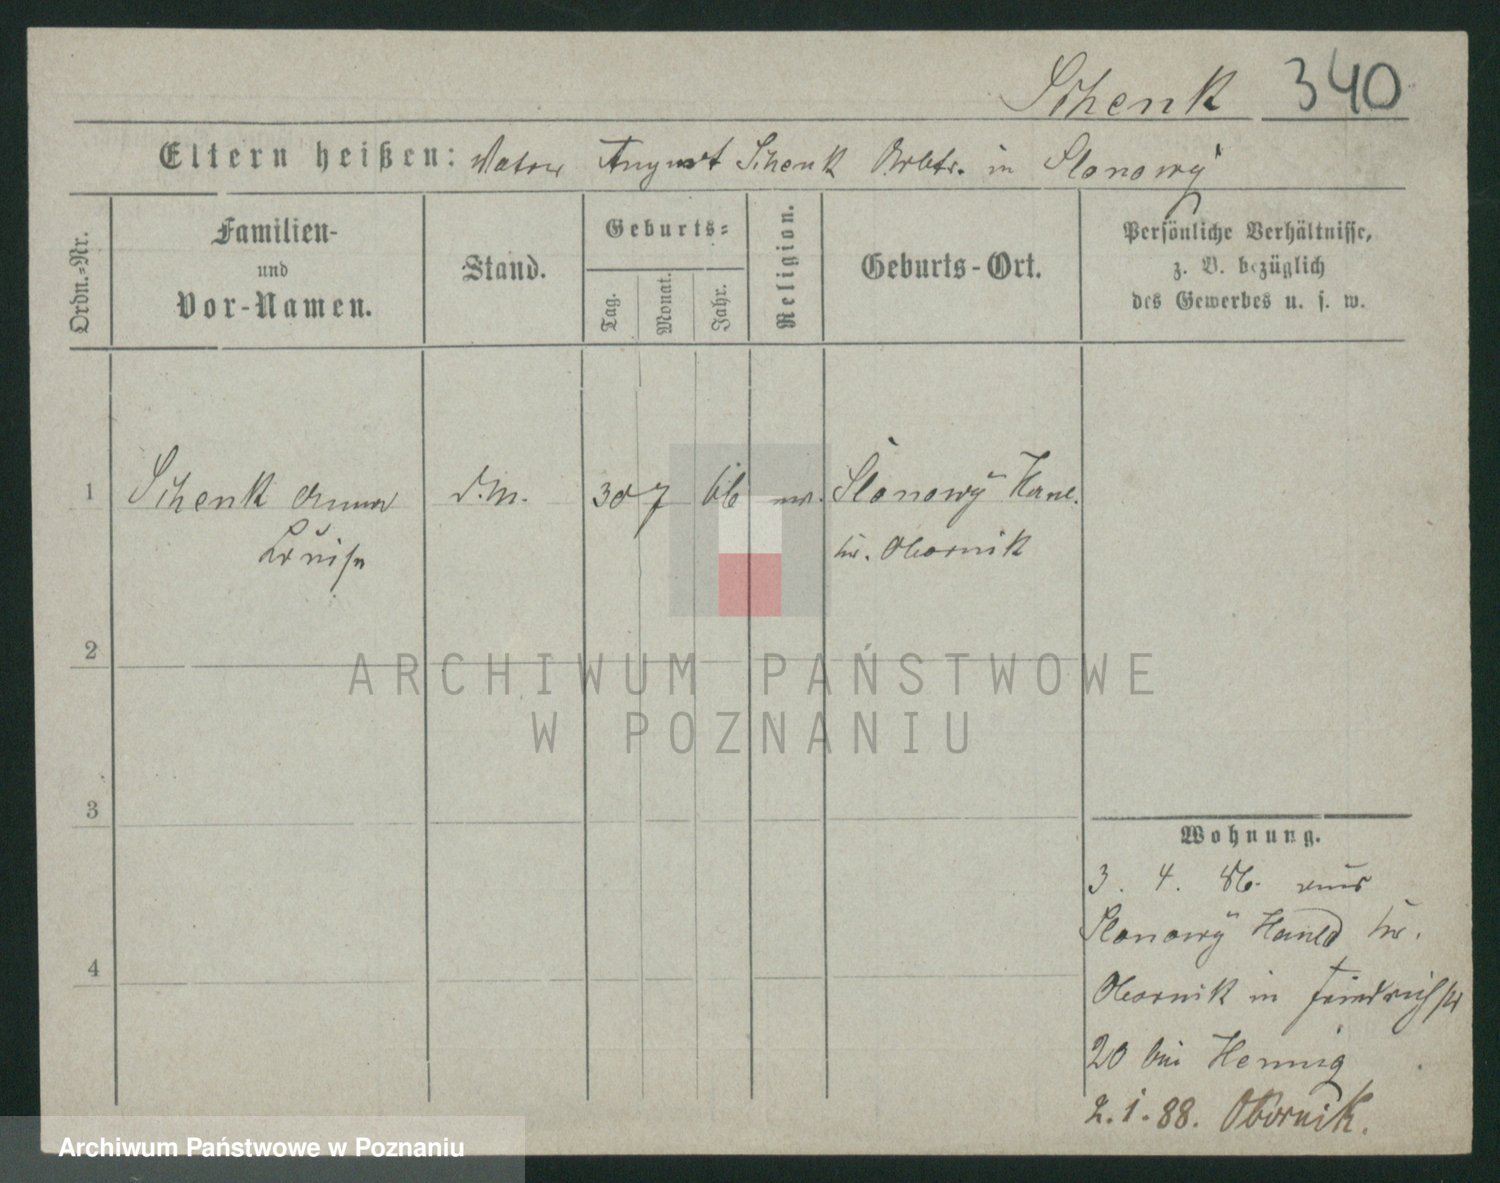 Schenk 340
Eltern heißen: Vater August Schenk Arbtr. in Slonawy
Ordn.-Nr.
Familien-
und
Vor-Namen.
Stand.
Geburts-
Tag.
Monat.
Jahr.
Religion.
Geburts-Ort.
Persönliche Verhältnisse,
z. B. bezüglich
des Gewerbes u. s. w.
1 Schenk Anna d.M. 30 7 66 ev. Slonawy Haul.
Luise Kr. Obornik
2
3
4
Wohnung.
3. 4. 86. aus
Slonawy Hauld Kr.
Obornik in Friedrichstr
20 bei Hennig
2.1.88. Obornik.
ARCHIWUM PAŃSTWOWE
W POZNANIU
Archiwum Państwowe w Poznaniu